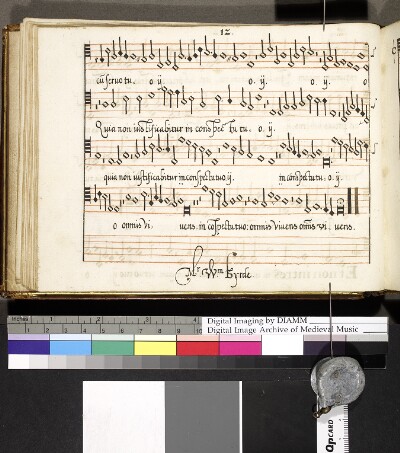 12.
cū servo tu. o ÿ. o. ÿ. o. ÿ. o
Quia non iustificabitur in conspec tu tu. o. ÿ.
quia non iustificabitur in conspectu tuo ÿ. in conspectu tu. o. ÿ.
o omnis vi. vens. in cōspectu tuo: omnis vivens omīs vi. vens.
Mr. Wm Byrde
Inches 1 2 3 4
Digital Imaging by DIAMM
Digital Image Archive of Medieval Music
QPCARD